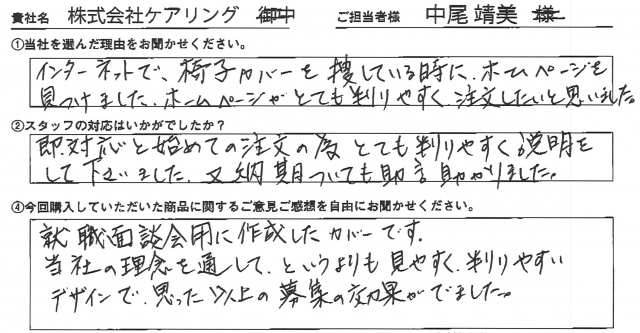 貴社名 株式会社ケアリング 御中 ご担当者様 中尾 靖美 様
①当社を選んだ理由をお聞かせください。
インターネットで、椅子カバーを捜している時に、ホームページを
見つけました。ホームページがとても判りやすく、注文したいと思いました。
②スタッフの対応はいかがでしたか？
即対応と始めての注文の為とても判りやすく説明を
して下さいました。又納期ついても助言助かりました。
④今回購入していただいた商品に関するご意見ご感想を自由にお聞かせください。
就職面談会用に作成したカバーです。
当社の理念を通して、というよりも見やすく、判りやすい
デザインで、思った以上の募集の効果がでました。